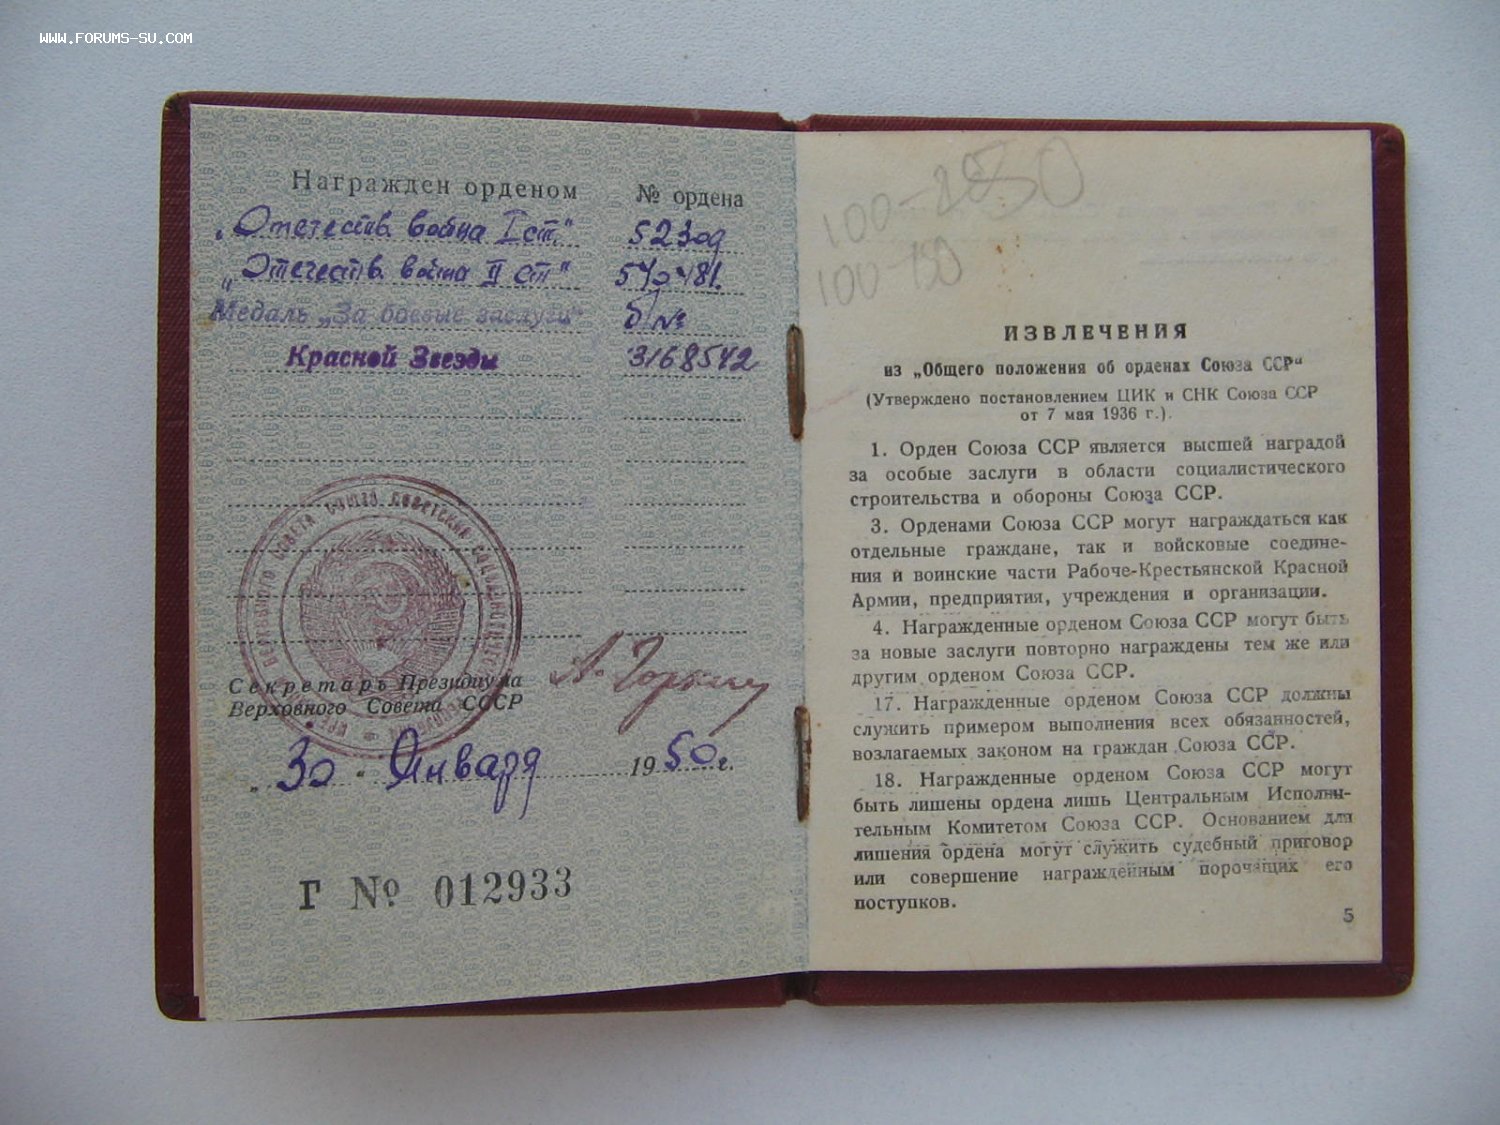 WWW.FORUMS-SU.COM
Награжден орденом № ордена
„Отечеств. война I ст." 52309
„Отечеств. война II ст" 540481.
Медаль „За боевые заслуги" б/№
Красной Звезды 3168542
Секретарь Президиума
Верховного Совета СССР
А. Горкин
„30" Января 1950 г.
Г № 012933
100-250
100-150
ИЗВЛЕЧЕНИЯ
из „Общего положения об орденах Союза ССР"
(Утверждено постановлением ЦИК и СНК Союза ССР
от 7 мая 1936 г.).
1. Орден Союза ССР является высшей наградой
за особые заслуги в области социалистического
строительства и обороны Союза ССР.
3. Орденами Союза ССР могут награждаться как
отдельные граждане, так и войсковые соедине-
ния и воинские части Рабоче-Крестьянской Красной
Армии, предприятия, учреждения и организации.
4. Награжденные орденом Союза ССР могут быть
за новые заслуги повторно награждены тем же или
другим орденом Союза ССР.
17. Награжденные орденом Союза ССР должны
служить примером выполнения всех обязанностей,
возлагаемых законом на граждан Союза ССР.
18. Награжденные орденом Союза ССР могут
быть лишены ордена лишь Центральным Исполни-
тельным Комитетом Союза ССР. Основанием для
лишения ордена могут служить судебный приговор
или совершение награждённым порочащих его
поступков.
5